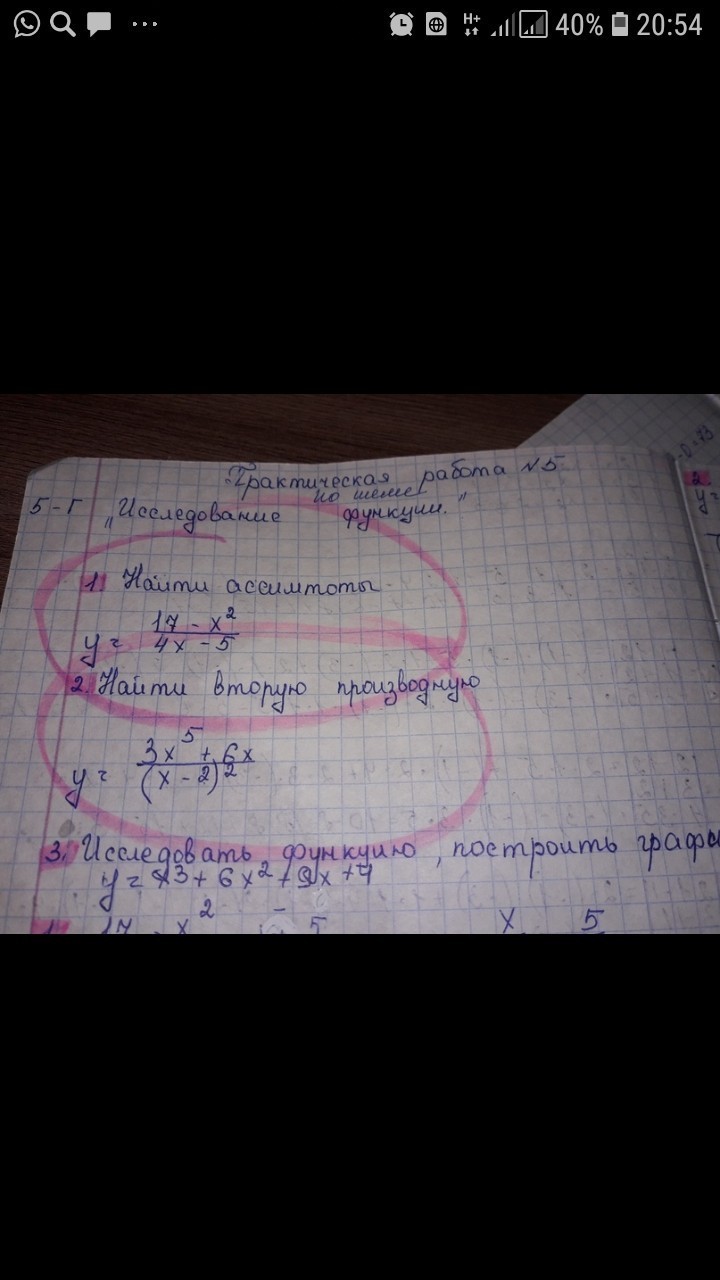 40% 20:54
Практическая работа N5
по теме
5-Г „Исследование функции."
1. Найти ассимтоты
y = \frac{17 - x^2}{4x - 5}
2. Найти вторую производную
y = \frac{3x^5 + 6x}{(x - 2)^2}
3. Исследовать функцию, построить графи
y = x3 + 6x2 + 9x + 4
2.
y=